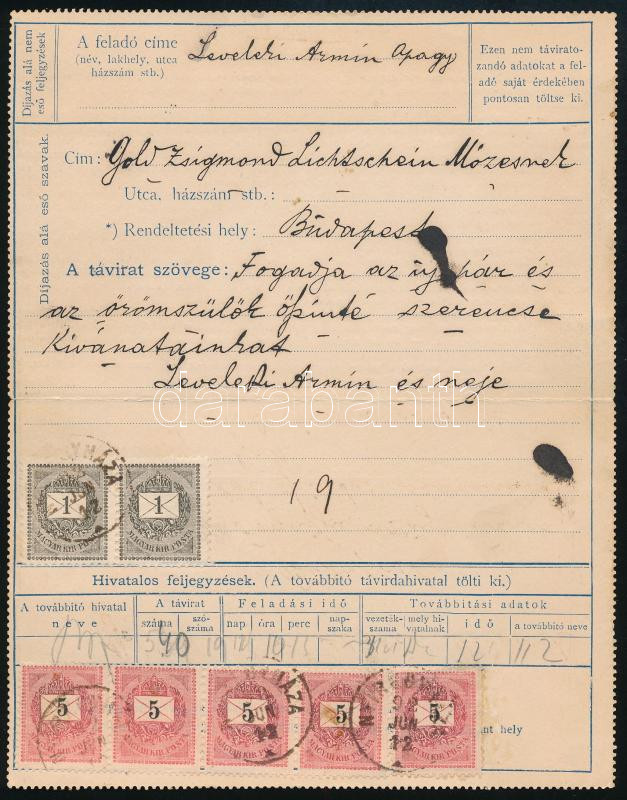 Díjazás alá nem eső feljegyzések
A feladó címe
(név, lakhely, utca
házszám stb.)
Leveleki Ármin Apagy
Ezen nem távirato-
zandó adatokat a fel-
adó saját érdekében
pontosan töltse ki.
Díjazás alá eső szavak.
Cím: Gold Zsigmond Lichtschein Mózesnek
Utca, házszám stb.:
*) Rendeltetési hely: Budapest
A távirat szövege: Fogadja az új pár és
az örömszülők őszinte szerencse
Kivánatainkat
Leveleki Ármin és neje
darabanth
19
1
MAGYAR KIR. POSTA
1
MAGYAR KIR. POSTA
Hivatalos feljegyzések. (A továbbító távirdahivatal tölti ki.)
A továbbító hivatal
neve
A távirat
száma
szó-
száma
Feladási idő
nap
óra
perc
nap-
szaka
Továbbítási adatok
vezeték-
száma
mely hi-
vatalnak
idő
a továbbító neve
5
MAGYAR KIR. POSTA
5
MAGYAR KIR. POSTA
5
MAGYAR KIR. POSTA
5
MAGYAR KIR. POSTA
5
JUN
12
hely